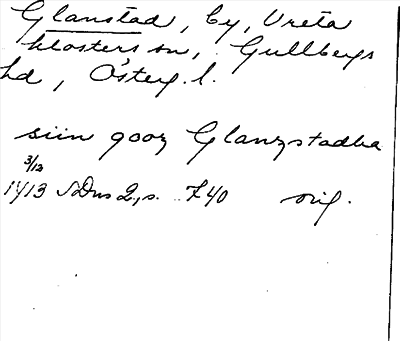 Glanstad, by, Vreta
klosters sn, Gullbergs
hd, Österg. l.
siin gooz Glanzstadha
3/12
1413 SDns 2, s. 740 orig.